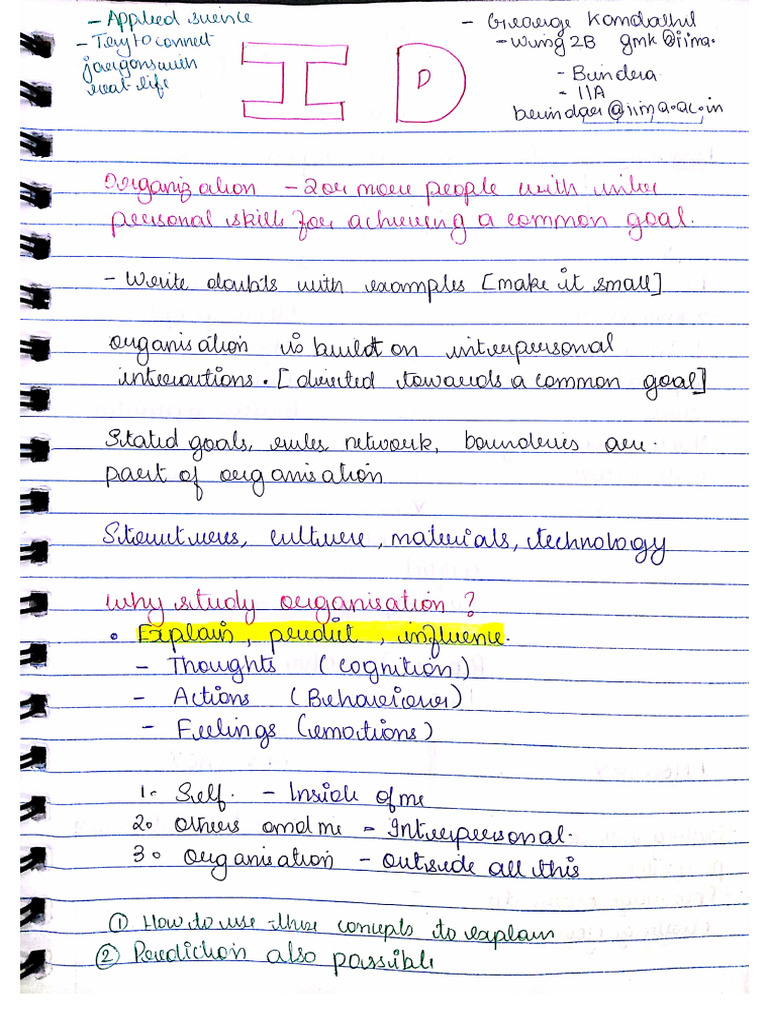 - Applied science
- Try to connect
jargons with
real life
I D
- George Kandathil
- Wing 2B gmk@iima.
- Bundera
- 11A
@iima.ac.in
Organization - 2 or more people with inter
personal skills for achieving a common goal.
- Write doubts with examples [make it small]
organisation is built on interpersonal
interactions. [directed towards a common goal]
Stated goals, rules network, bounderies are.
part of organisation
Structures, culture, materials, technology
Why study organisation?
• Explain, predict, influence.
- Thoughts (cognition)
- Actions (Behaviour)
- Feelings (emotions)
1. Self. - Inside of me
2. Others and me - Interpersonal.
3. Organisation - outside all this
① How to use these concepts to explain
② Prediction also possible